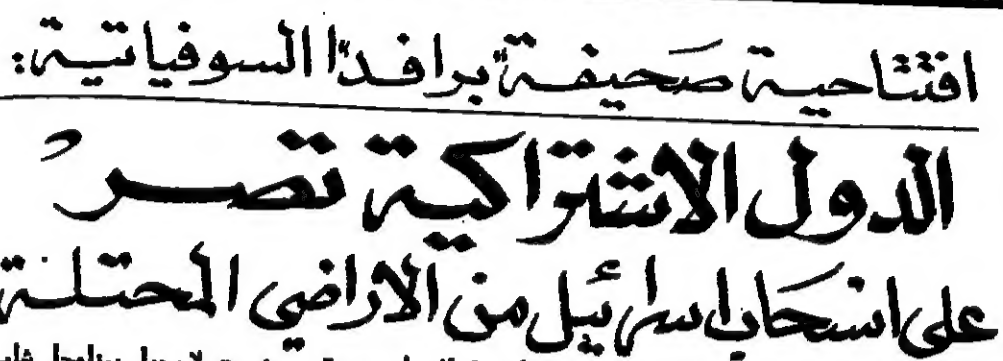 افتتاحية صحيفة "برافدا" السوفياتية:
الدول الاشتراكية تصر
على انسحاب اسرائيل من الاراضي المحتلة